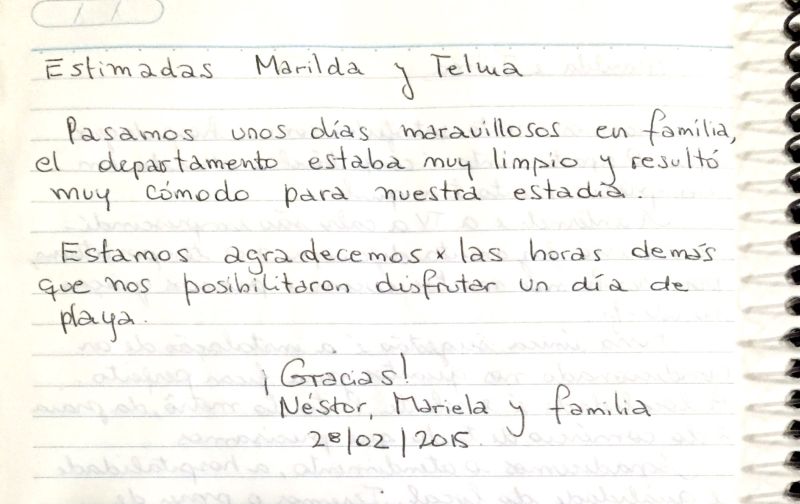 Estimadas Marilda y Telma
Pasamos unos días maravillosos en família,
el departamento estaba muy limpio y resultó
muy cómodo para nuestra estadía.
Estamos agradecemos x las horas demás
que nos posibilitaron disfrutar un día de
playa.
¡Gracias!
Néstor, Mariela y familia
28/02/2015.